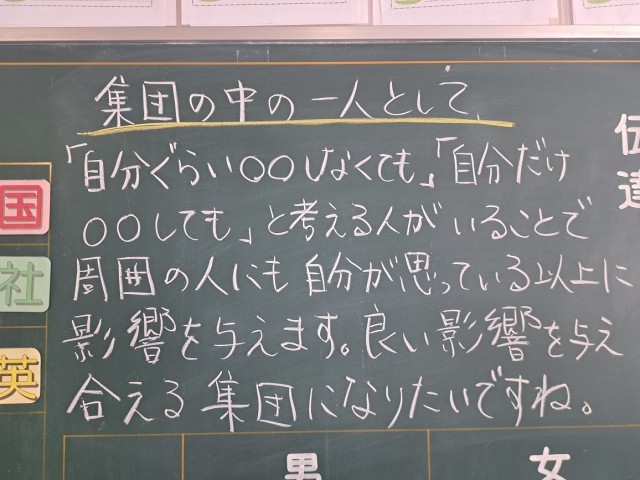 集団の中の一人として、
「自分ぐらい〇〇しなくても」「自分だけ
〇〇しても」と考える人がいることで
周囲の人にも自分が思っている以上に
影響を与えます。良い影響を与え
合える集団になりたいですね。
伝達
国
社
英
男
女